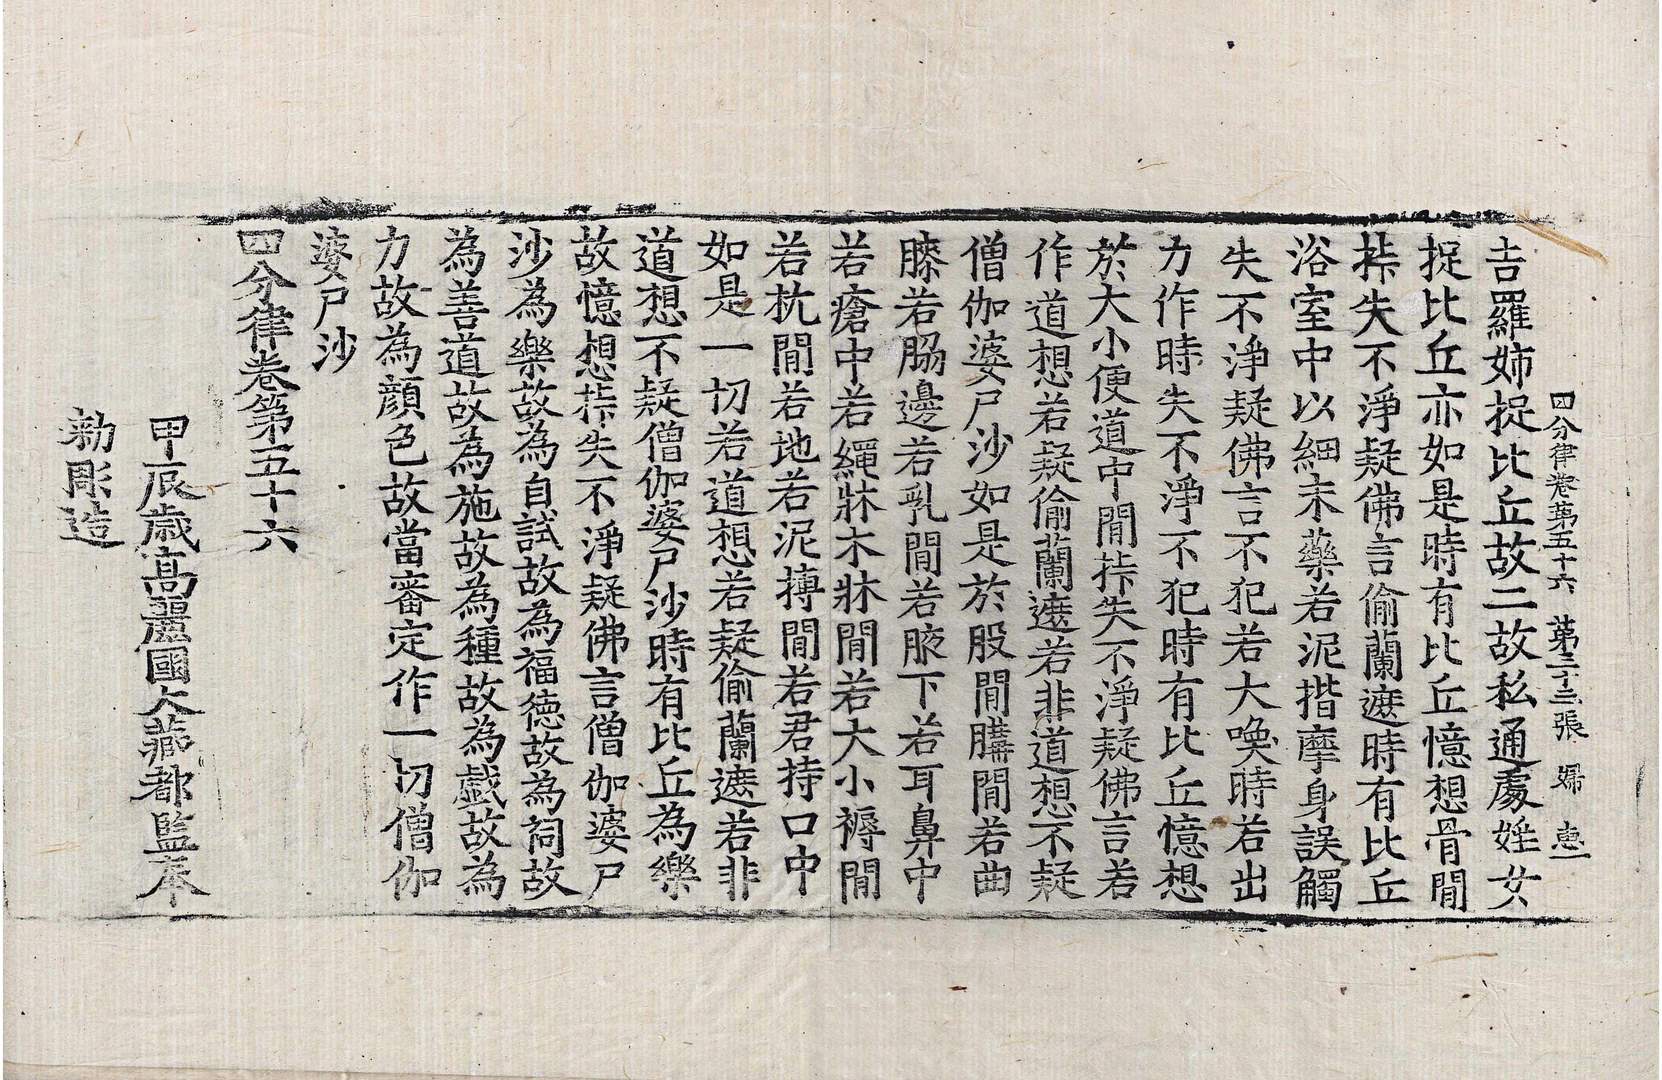 四分律卷第五十六 第二十三張 婦 惠一
吉羅姉捉比丘故二故私通處婬女
捉比丘亦如是時有比丘憶想骨間
㧻失不淨疑佛言偷蘭遮時有比丘
浴室中以細末藥若泥揩摩身誤觸
失不淨疑佛言不犯若大喚時若出
力作時失不淨不犯時有比丘憶想
於大小便道中間㧻失不淨疑佛言若
作道想若疑偷蘭遮若非道想不疑
僧伽婆尸沙如是於股間𨄔間若曲
膝若脇邊若乳間若腋下若耳鼻中
若瘡中若繩牀木牀間若大小褥間
若杭間若地若泥摶間若君持口中
如是一切若道想若疑偷蘭遮若非
道想不疑僧伽婆尸沙時有比丘為樂
故憶想㧻失不淨疑佛言僧伽婆尸
沙為樂故為自試故為福德故為祠故
為善道故為施故為種故為戲故為
力故為顔色故當審定作一切僧伽
婆尸沙
四分律卷第五十六
甲辰歲高麗國大藏都監奉
勅彫造